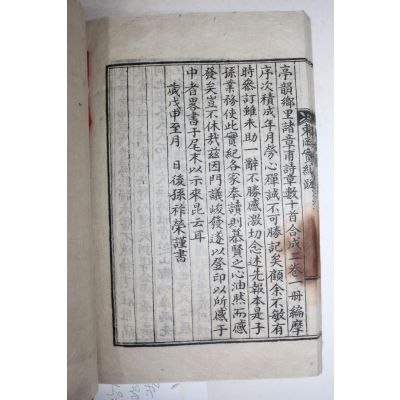 亭韻鄉里諸章甫詩章數十首合成二卷一册編摩
序次積成年月勞心殫誠不可勝記矣顧余不敏有
時參訂雖未助一辭不勝感激切念述先報本是子
孫業務使此實紀各家奉讀則慕賢之心油然而感
發矣豈不休哉玆因門議峻發遂以登印以所感于
中者畧書于尾末以示來昆云耳
歲戊申至月　日後孫祚榮謹書